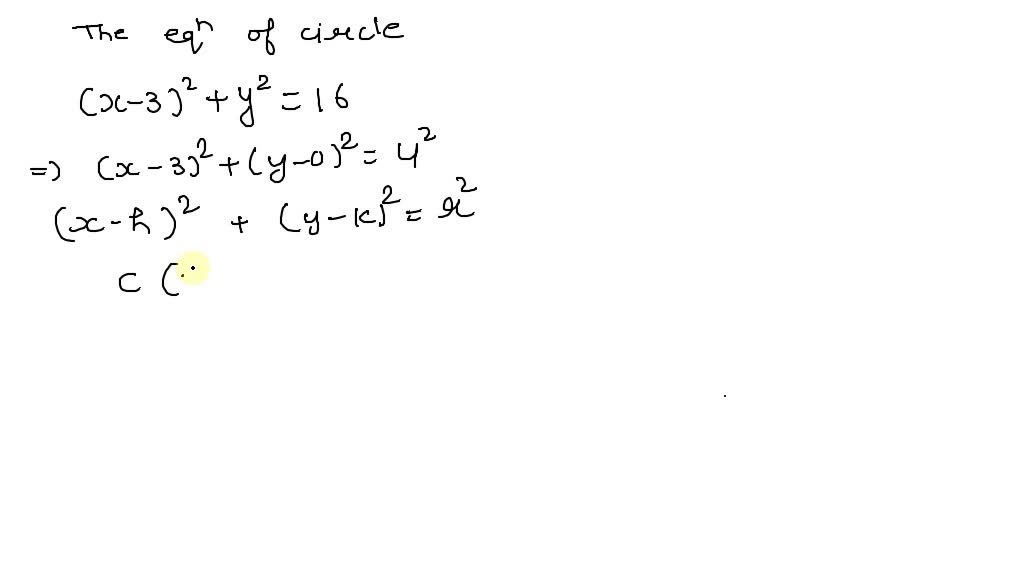 The eqⁿ of circle
(x-3)² + y² = 16
=) (x-3)² + (y-0)² = 4²
(x-h)² + (y-k)² = r²
C (